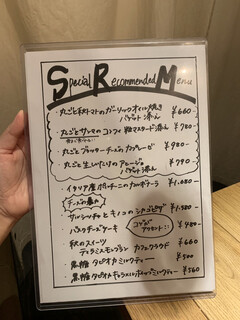 Special Recommended Menu
・丸ごと秋トマトのガーリックオイル焼き
バゲット添え ¥660-
・丸ごとサンマのコンフィ 粒マスタード添え ¥780-
・丸ごとブラッターチーズのカプレーゼ ¥980-
・丸ごと生しいたけのアヒージョ
バゲット添え ¥790-
・イタリア産ポルチーニのカルボナーラ ¥1.680-
チーズの香り
・サルシッチャとキノコのシカゴピザ ¥1.980-
・バスクチーズケーキ ¥480-
・秋のスイーツ
ティラミスモンブラン カフェクラウド ¥660
・黒糖タピオカミルクティー ¥500
・黒糖タピオカキャラメルホイップミルクティー ¥560